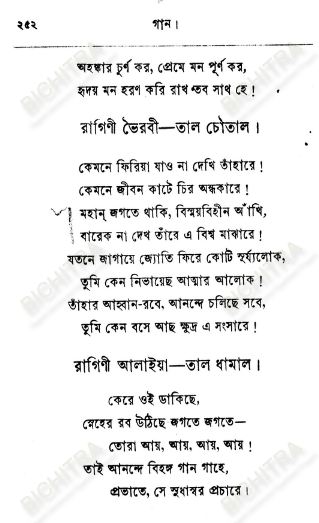 ২৫২
গান।
অহঙ্কার চূর্ণ কর, প্রেমে মন পূর্ণ কর,
হৃদয় মন হরণ করি রাখ তব সাথ হে!
রাগিণী ভৈরবী—তাল চৌতাল।
কেমনে ফিরিয়া যাও না দেখি তাঁহারে!
কেমনে জীবন কাটে চির অন্ধকারে!
মহান্ জগতে থাকি, বিস্ময়বিহীন আঁখি,
বারেক না দেখ তাঁরে এ বিশ্ব মাঝারে!
যতনে জাগায়ে জ্যোতি ফিরে কোটি সূর্য্যলোক,
তুমি কেন নিভায়েছ আত্মার আলোক!
তাঁহার আহ্বান-রবে, আনন্দে চলিছে সবে,
তুমি কেন বসে আছ ক্ষুদ্র এ সংসারে!
রাগিণী আলাইয়া—তাল ধামাল।
কেরে ওই ডাকিছে,
স্নেহের রব উঠিছে জগতে জগতে—
তোরা আয়, আয়, আয়, আয়!
তাই আনন্দে বিহঙ্গ গান গাহে,
প্রভাতে, সে সুধাস্বর প্রচারে।
BICHITRA
BICHITRA
BICHITRA
BICHITRA
BICHITRA
BICHITRA